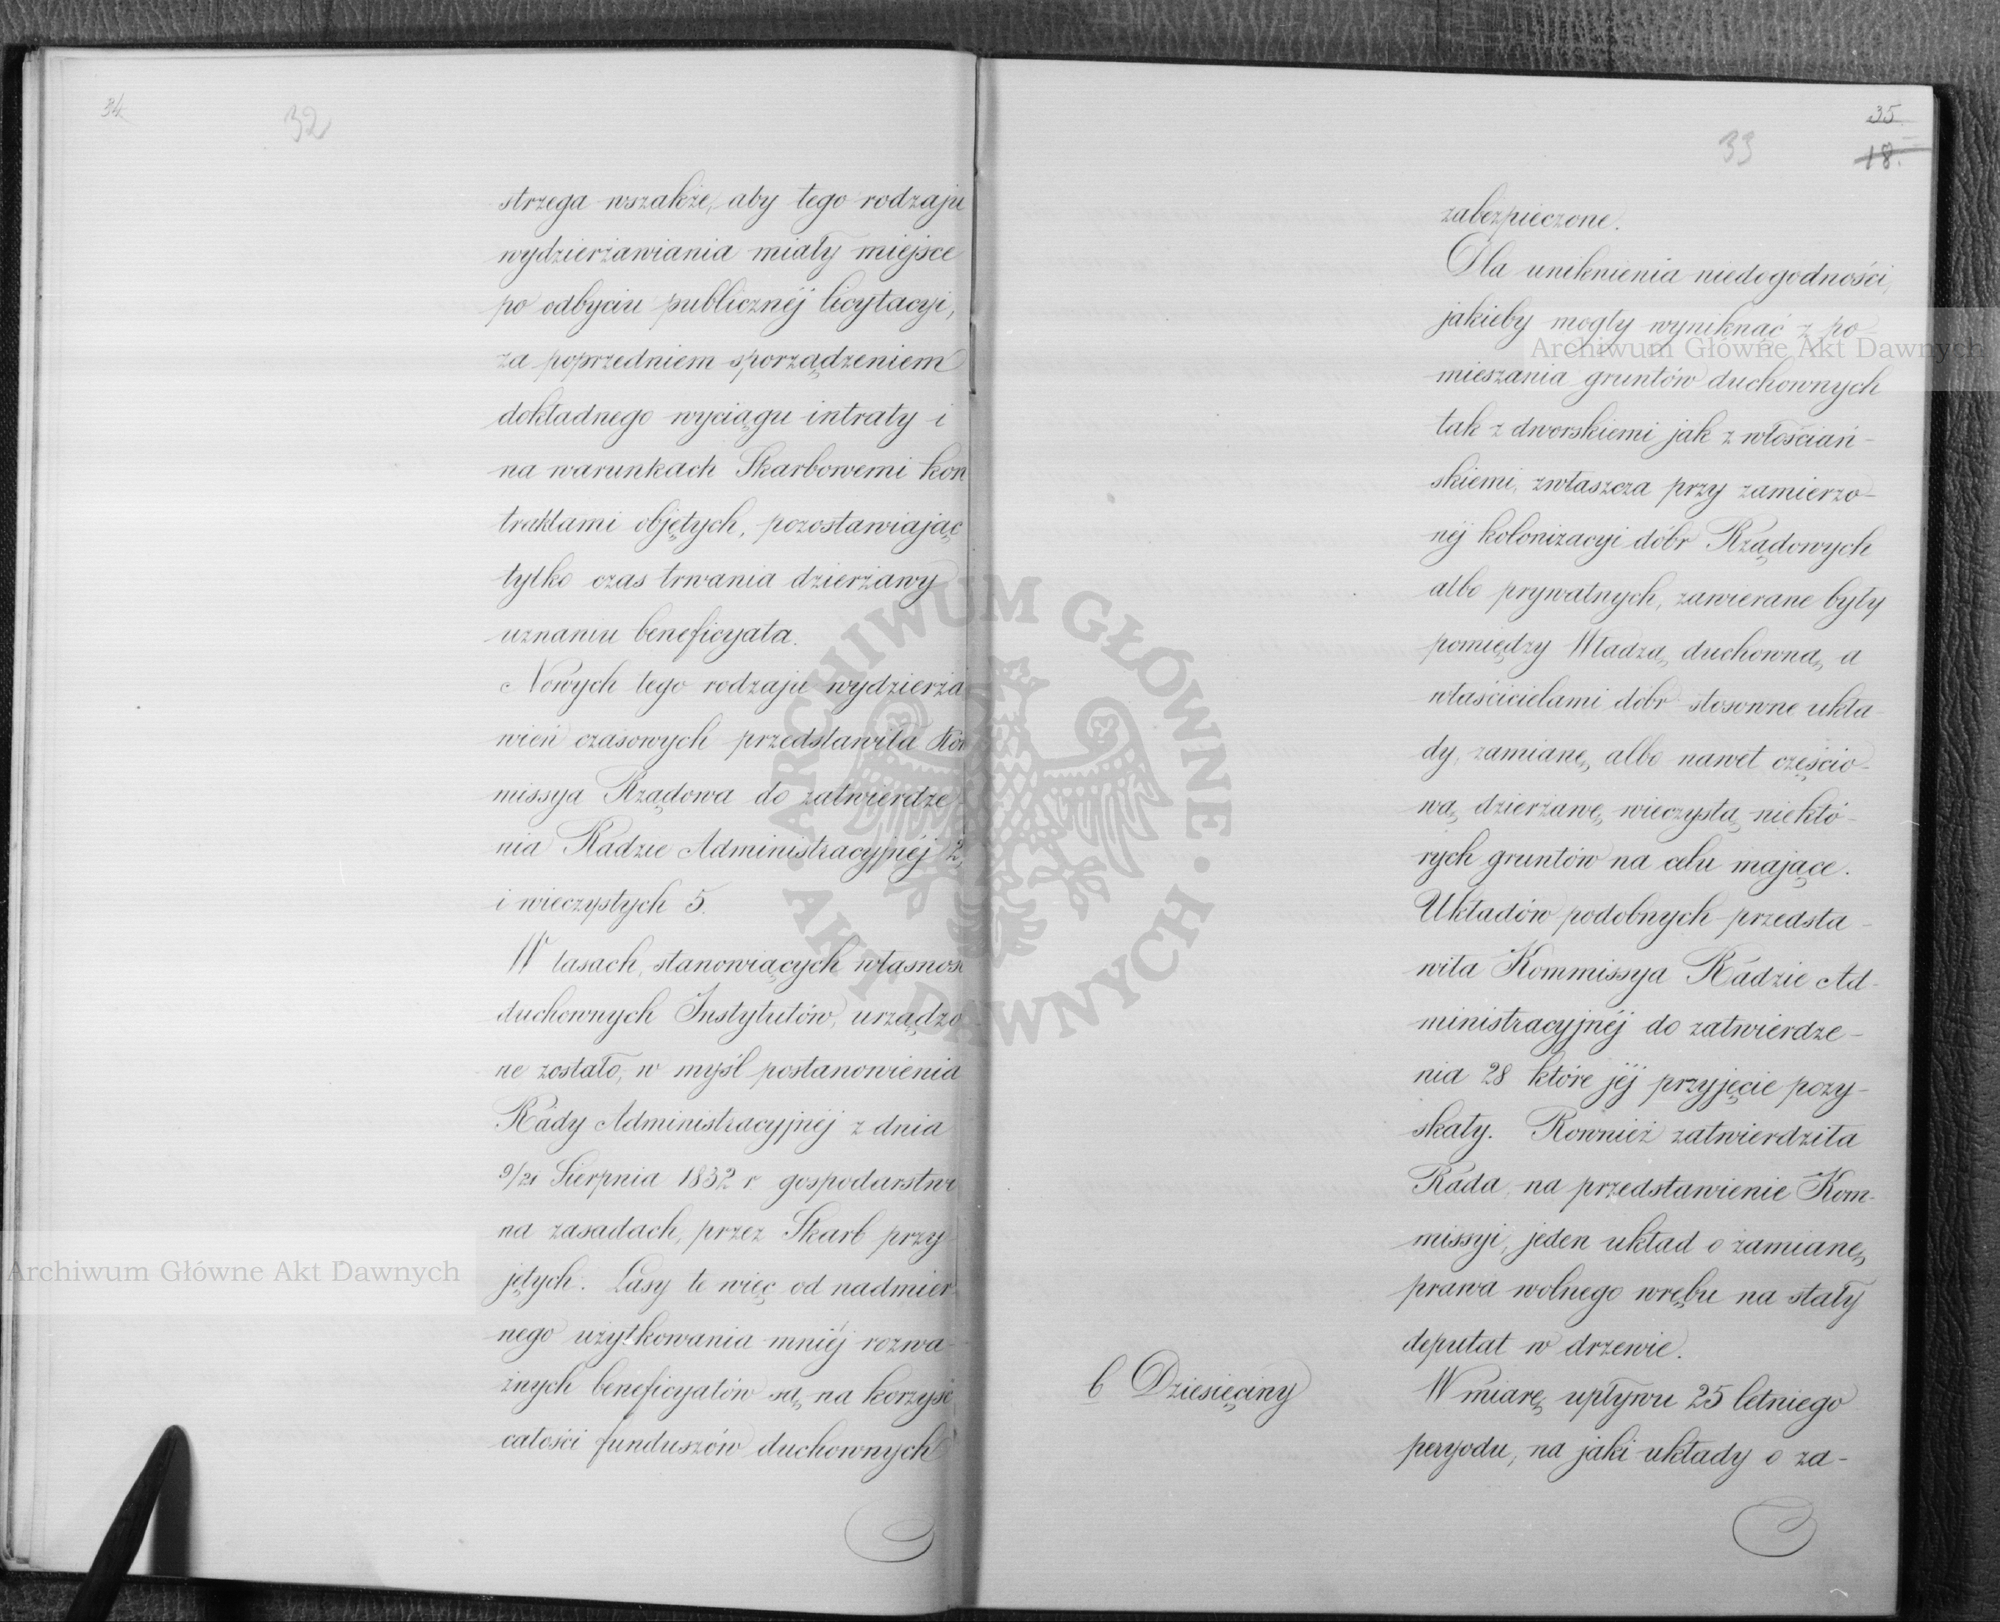 34
32
strzega wszakże, aby tego rodzaju
wydzierżawiania miały miejsce
po odbyciu publicznéj licytacyi,
za poprzedniem sporządzeniem
dokładnego wyciągu intraty i
na warunkach Skarbowemi kon
traktami objętych, pozostawiając
tylko czas trwania dzierżawy
uznaniu beneficyata.
Nowych tego rodzaju wydzierża
wień czasowych przedstawiła Kom
missya Rządowa do zatwierdze
nia Radzie Administracyjnéj 2,
i wieczystych 5.
W lasach, stanowiących własnoś
duchownych Instytutów, urządzo
ne zostało, w myśl postanowienia
Rady Administracyjnéj z dnia
9/21 Sierpnia 1832 r gospodarstwo
na zasadach, przez Skarb przy
jętych. Lasy te więc od nadmier
nego użytkowania mniéj rozwa-
żnych beneficyatów są, na korzyść
całości funduszów duchownych
35
33
18.
zabezpieczone.
Dla uniknienia niedogodności,
jakieby mogły wyniknąć z po
mieszania gruntów duchownych
tak z dworskiemi jak z włościań-
skiemi, zwłaszcza przy zamierzo-
néj kolonizacyi dóbr Rządowych
albo prywatnych, zawierane były
pomiędzy Władzą duchowną, a
właścicielami dóbr stosowne ukła-
dy, zamianę, albo nawet częścio-
wą dzierżawę wieczystą niektó-
rych gruntów na celu mające.
Układów podobnych przedsta-
wiła Kommissya Radzie Ad-
ministracyjnéj do zatwierdze-
nia 28 które jéj przyjęcie pozy-
skały. Również zatwierdziła
Rada, na przedstawienie Kom-
missyi, jeden układ o zamianę
prawa wolnego wrębu na stały
deputat w drzewie.
b Dziesięciny
W miarę upływu 25 letniego
peryodu, na jaki układy o za-
Archiwum Główne Akt Dawnych
Archiwum Główne Akt Dawnych
ARCHIWUM GŁÓWNE · AKT DAWNYCH ·